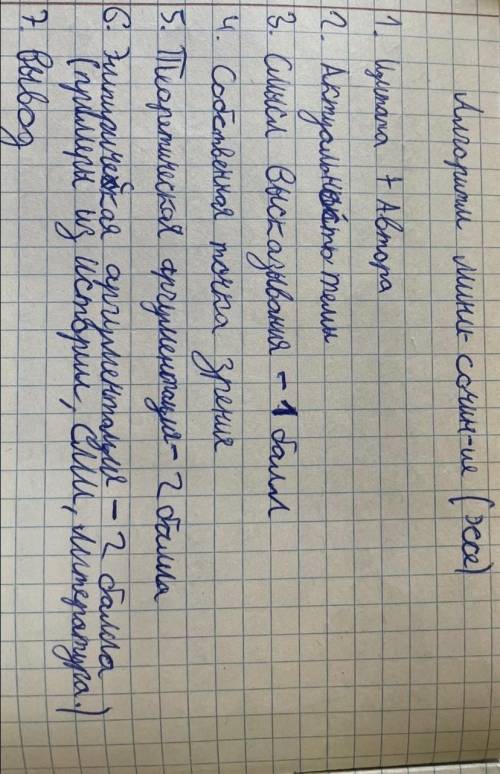 Алгоритм мини-сочин-ие (эссе)
1. Цитата + Автора
2. Актуальность темы
3. Смысл высказывания - 1 балл
4. Собственная точка зрения
5. Теоритическая аргументация - 2 балла
6. Эмпирическая аргументация - 2 балла
(примеры из истории, СМИ, литература.)
7. Вывод